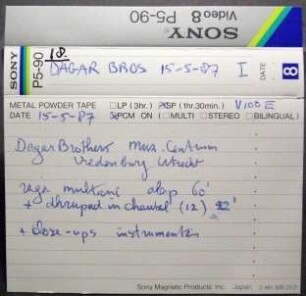 SONY
Video8 P5-90
SONY P5-90
18.
DAGAR BROS 15-5-87 I
DATE
8
METAL POWDER TAPE □LP (3hr.) SP (1hr.30min.) V100E
DATE 15-5-87 PCM ON (□MULTI □STEREO □BILINGUAL)
Dagar Brothers Muz. Centrum
Vredenburg Utrecht
raga multani alap 60'
+ dhrupad in chautal (12)
+ close-ups instrumenten
Sony Magnetic Products Inc. Japan